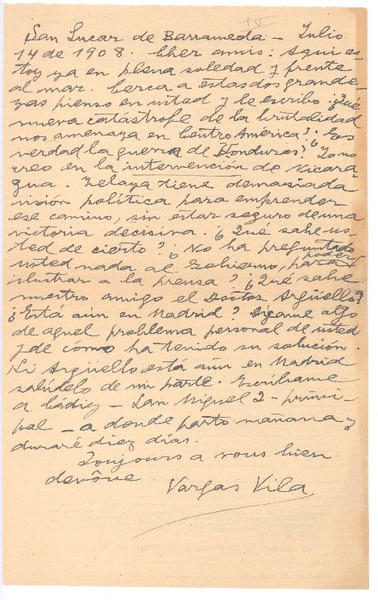 IV
San Lucar de Barrameda - Julio
14 de 1908. Cher amis: Aqui es-
toy ya en plena soledad y frente
al mar. Cerca a estas dos grande-
zas pienso en usted y le escribo ¿Qué
nueva catástrofe de la brutalidad
nos amenaza en Centro América? ¿Es
verdad la guerra de Honduras? Yo no
creo en la intervención de Nicara
gua. Zelaya tiene demasiada
visión política para emprender
ese camino, sin estar seguro de una
victoria decisiva. ¿Qué sabe us-
ted de cierto? ¿No ha preguntado
usted nada al Gobierno, para poder
ilustrar a la prensa? ¿Qué sabe
nuestro amigo el Doctor Argüello?
¿Está aún en Madrid? Digame algo
de aquel problema personal de usted
y de cómo ha tenido su solución.
Si Argüello está aún en Madrid
salúdelo de mi parte. Escribame
a Cádiz - San Miguel 2 - princi-
pal - a donde parto mañana y
duraré diez días.
Toujours a vous bien
devôue
Vargas Vila